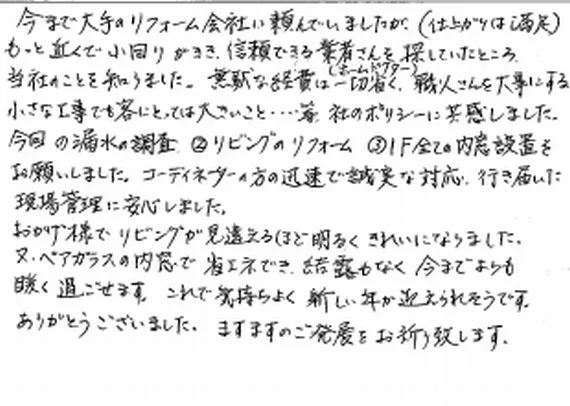 今まで大手のリフォーム会社に頼んでいましたが、(仕上がりは満足)
もっと近くで小回りがきき、信頼できる業者さんを探していたところ
当社のことを知りました。無駄な経費は一切省く、職人さんを大事にする
(ホームドクター)
小さな工事でも客にとっては大きいこと・・・等、社のポリシーに共感しました。
今回 の漏水の調査 ②リビングのリフォーム ③1F全ての内窓設置を
お願いしました。コーディネーターの方の迅速で誠実な対応、行き届いた
現場管理に安心しました。
おかげ様でリビングが見違えるほど明るくきれいになりました。
又、ペアガラスの内窓で省エネでき、結露もなく今までよりも
暖く過ごせます。これで気持ちよく新しい年が迎えられそうです。
ありがとうございました。ますますのご発展をお祈り致します。